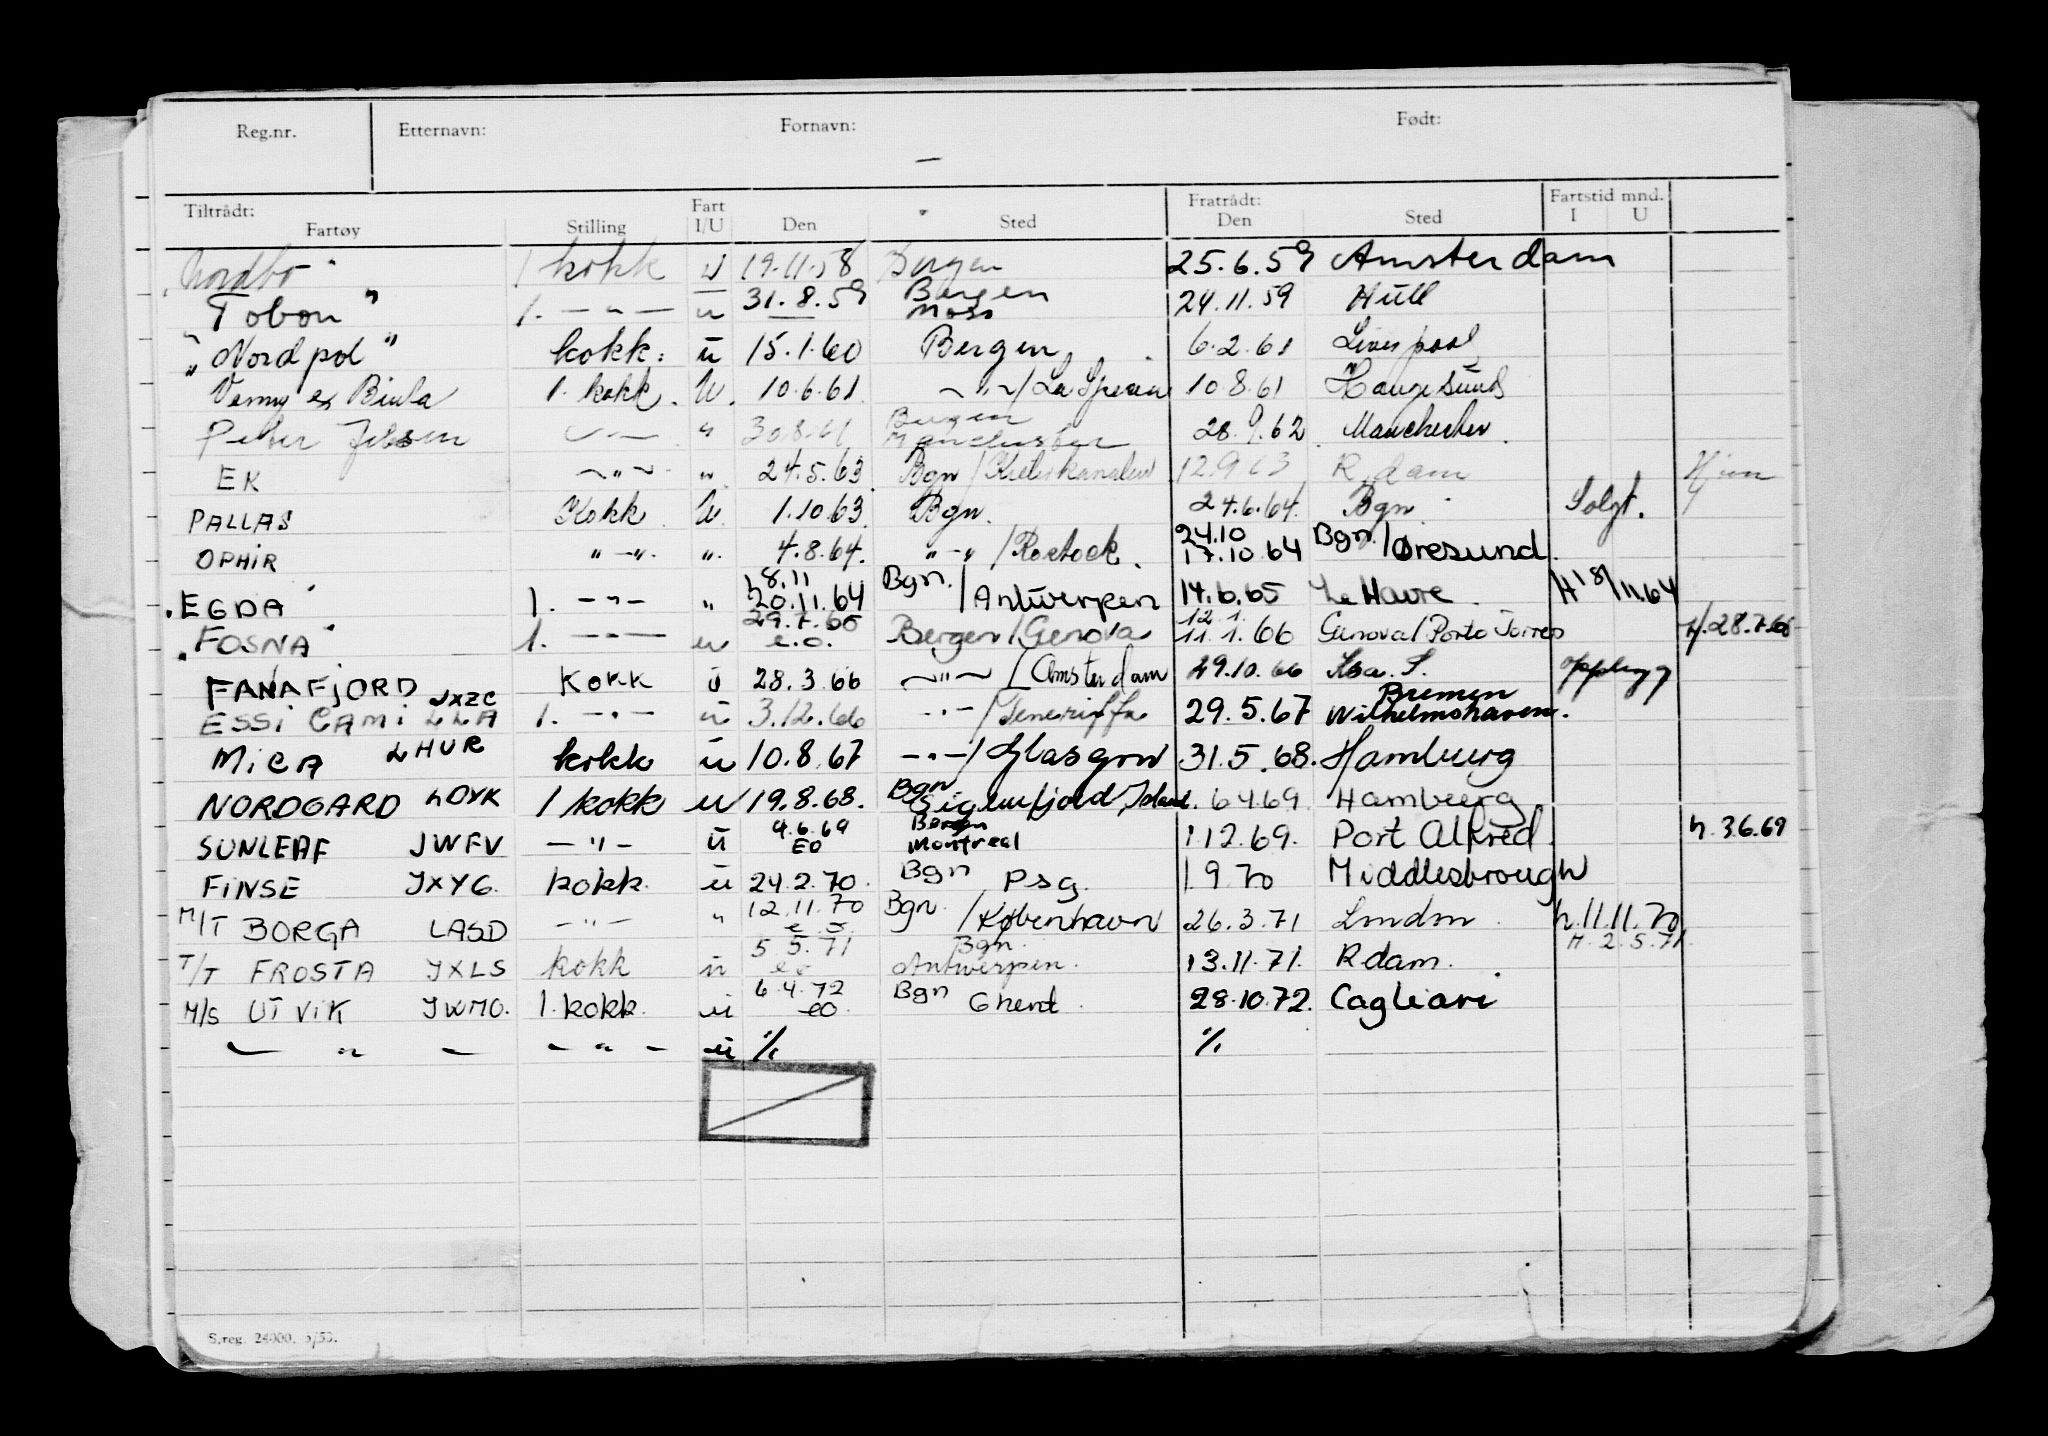 Reg.nr. Etternavn: Fornavn: Født:
—
Tiltrådt: Fartøy Stilling Fart I/U Den Sted Fratrådt: Den Sted Fartstid mnd. I U
Nordbo " 1 kokk u 19.11.58 Bergen 25.6.59 Amsterdam
" Tobon " 1. — " — u 31.8.59 Bergen Moss 24.11.59 Hull
" Nordpol " kokk. u 15.1.60 Bergen 6.2.61 Liverpool
Vanny ex 1. kokk. U. 10.6.61 — " — / La Spezia 10.8.61 Haugesund
Peter Jebsen — " — " 30.8.61 Bergen Manchester 28.9.62 Manchester.
EK — " — " 24.5.63 Bgn / Kielerkanalen 12.9.63 R.dam
PALLAS Kokk U. 1.10.63. Bgn. 24.6.64. Bgn. Solgt.
OPHIR " — " ". 4.8.64. " — " / Rostock. 24.10 17.10.64 Bgn / Øresund.
" EGDA " 1. — " — " 18.11 20.11.64 Bgn. / Antwerpen 14.6.65 Le Havre. H 18/11.64
" FOSNA " 1. — " — u 29.7.65 e.o. Bergen / Genova 12.1. 11.1.66 Genova / Porto Torres H. 28.7.65
FANAFJORD JXZC Kokk u 28.3.66 — " — / Amsterdam 29.10.66 Kr.a. S. opphugg
ESSI CAMILLA 1. — " — u 3.12.66 — " — / Teneriffa 29.5.67 Bremen Wilhelmshaven.
MICA LHUR kokk u 10.8.67 — " — / Glasgow 31.5.68. Hamburg
NORDGARD LDYK 1 kokk u 19.8.68. Bgn Siglufjord, Island. 6 4 69. Hamburg
SUNLEAF JWFV — " — u 4.6.69 EO Bergen Montreal 1 12.69. Port Alfred. h. 3.6.69
FINSE JXYG. kokk. u 24.2.70. Bgn Psg. 1.9 70 Middlesbrough
M/T BORGA LASD — " — " 12.11.70 e o Bgn. / København 26.3.71 London. h. 11.11.70
T/T FROSTA JXLS kokk u 5 5.71 eo Bgn. Antwerpen. 13.11.71. Rdam. H. 2.5.71
M/S UTVIK JWMO. 1. kokk. u 6.4.72 eo. Bgn Ghent. 28.10.72. Cagliari
— " — — " — u %. %.
S.reg. 24000. 5/53.